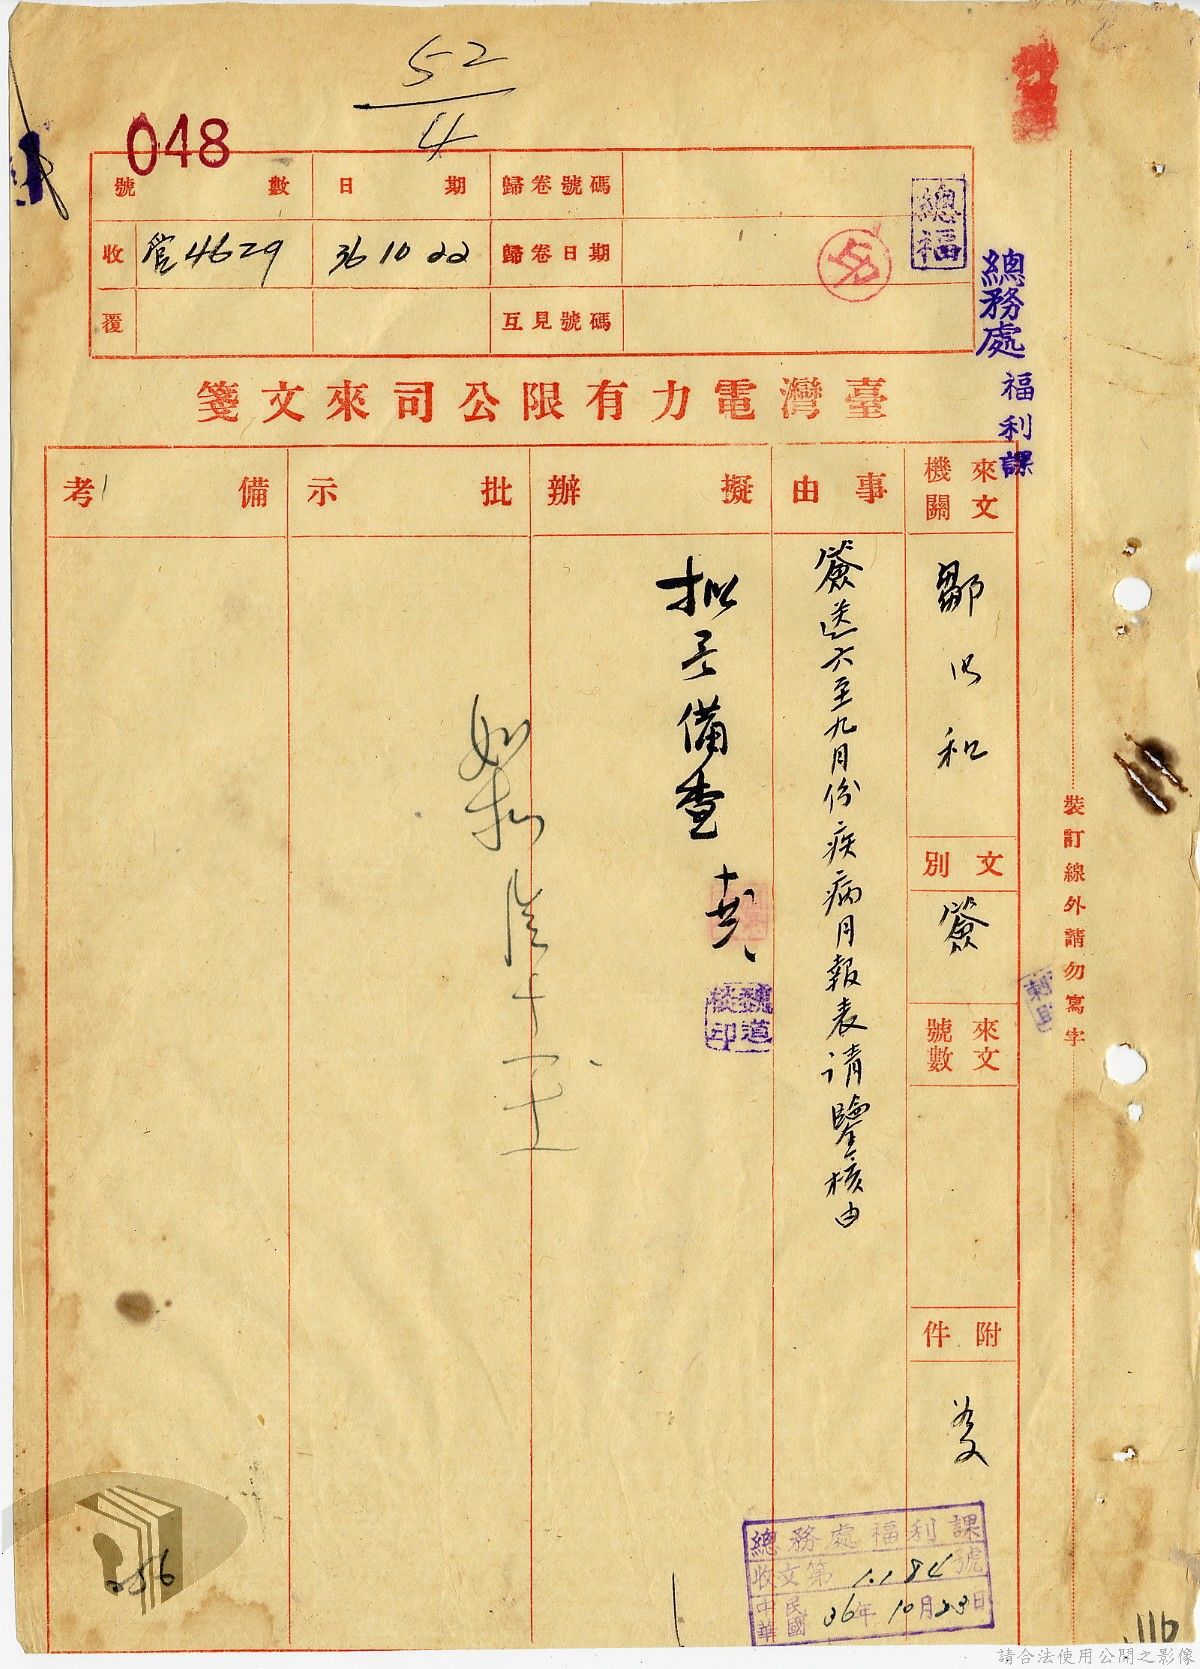 52
4
048
號數 日期 歸卷號碼
收 管4629 36 10 22 歸卷日期
覆 互見號碼
總福
總務處 福利課
臺灣電力有限公司來文箋
來文機關
鄒以和
文別
簽
來文號數
附件
事由
簽送六至九月份疾病月報表請鑒核由
擬辦
擬予備查
魏道棪印
批示
如擬
備考
裝訂線外請勿寫字
總務處福利課
收文第1.184號
中華民國36年10月23日
056
116
請合法使用公開之影像